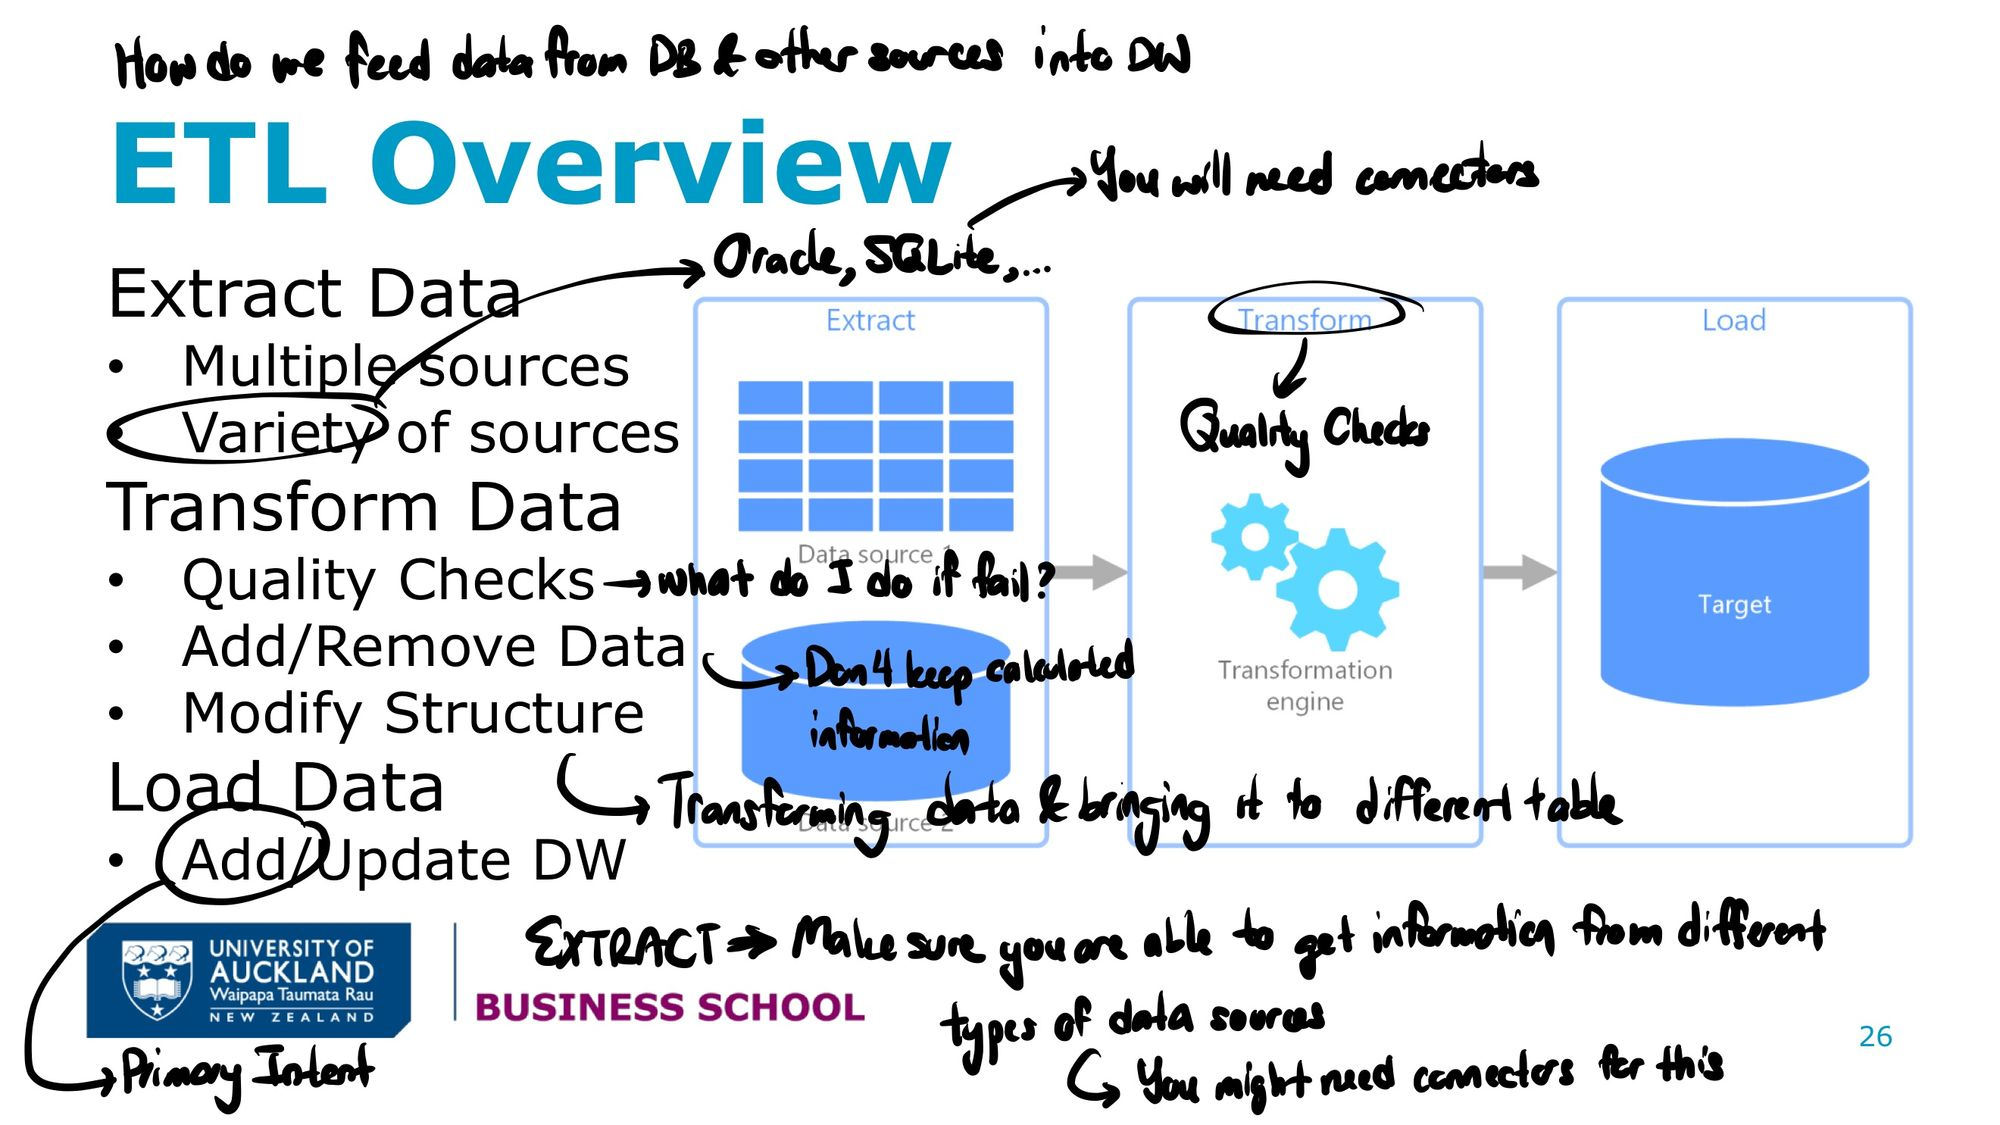 How do we feed data from DB & other sources into DW
ETL Overview
You will need connectors
Oracle, SQLite,...
Extract Data
• Multiple sources
• Variety of sources
Transform Data
• Quality Checks → what do I do if fail?
• Add/Remove Data
Don't keep calculated
information
• Modify Structure
Transforming data & bringing it to different table
Load Data
• Add/Update DW
Primary Intent
Extract
Data source 1
Data source 2
Transform
Quality Checks
Transformation
engine
Load
Target
EXTRACT → Make sure you are able to get information from different
types of data sources
You might need connectors for this
UNIVERSITY OF
AUCKLAND
Waipapa Taumata Rau
NEW ZEALAND
BUSINESS SCHOOL
26